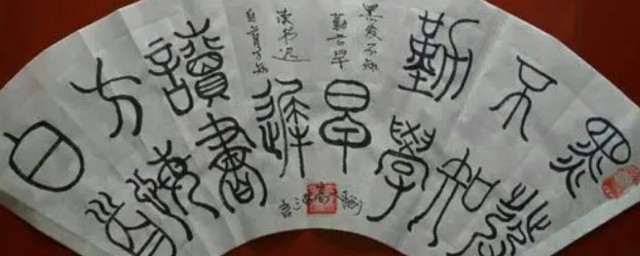 黑髮
不知
勤學
早
白首
方悔
讀書
遲
黑发不知
勤学早
读书迟
白首方